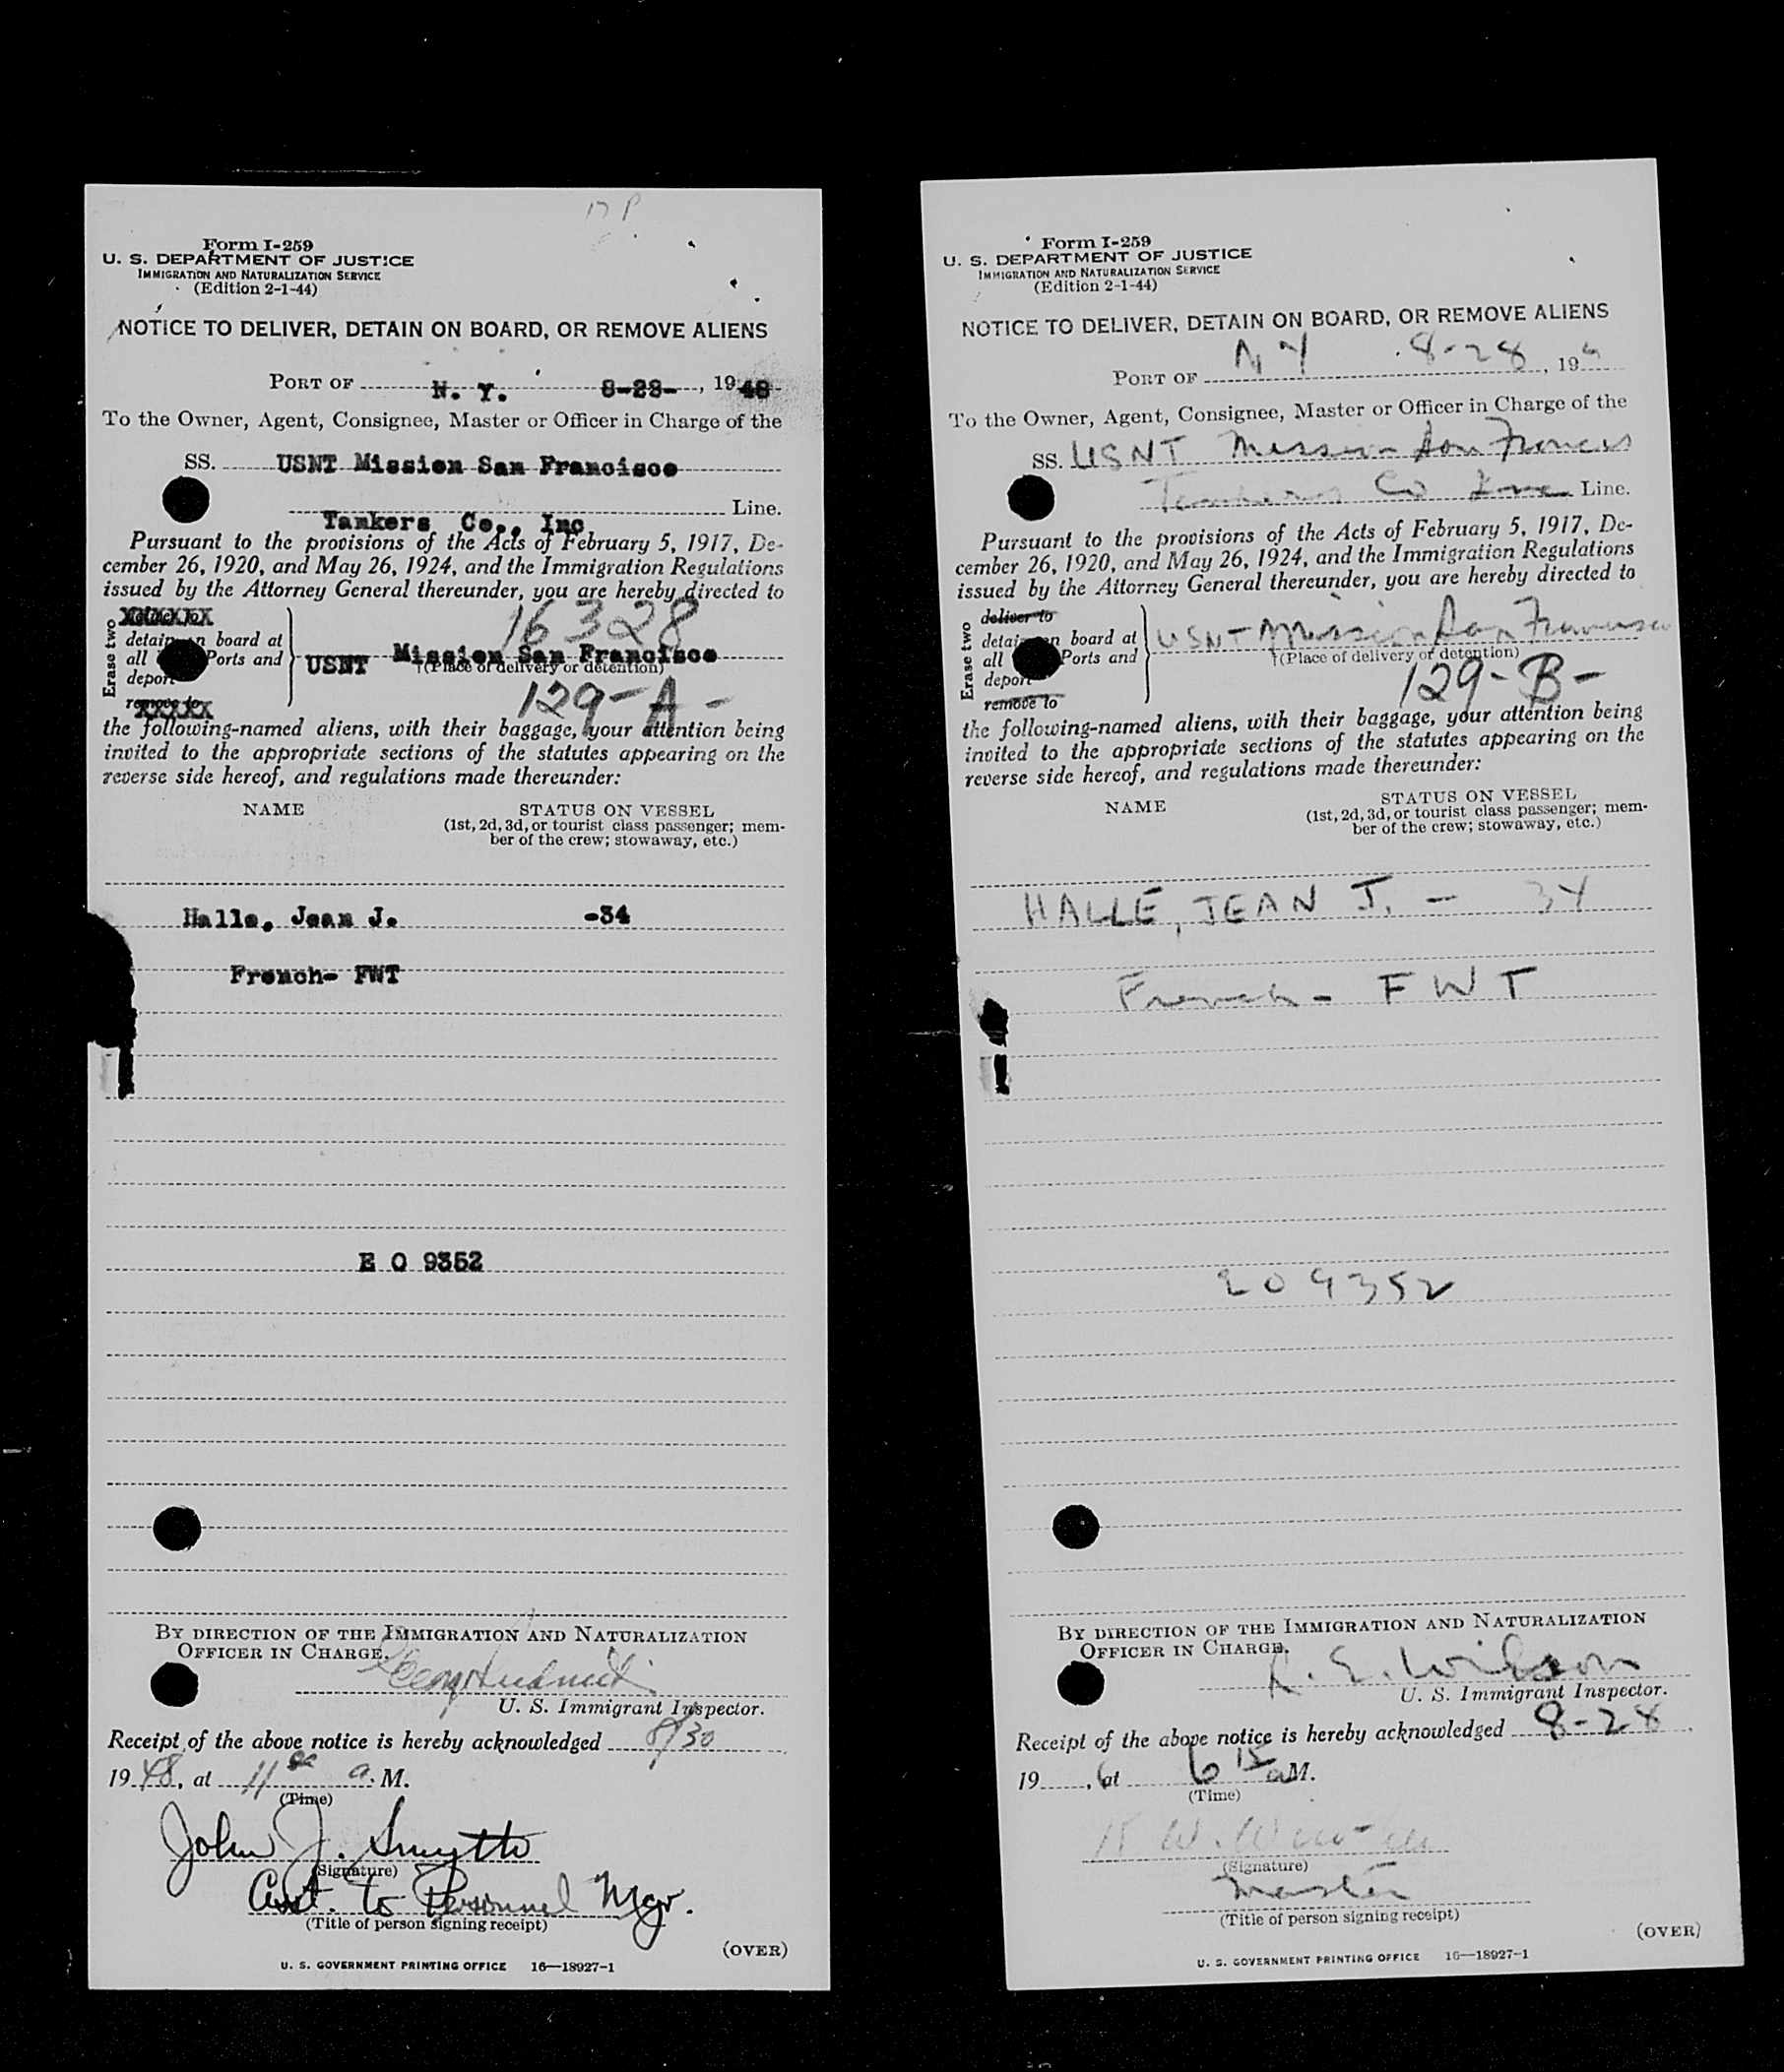 17 P
Form I-259
U. S. DEPARTMENT OF JUSTICE
IMMIGRATION AND NATURALIZATION SERVICE
(Edition 2-1-44)
NOTICE TO DELIVER, DETAIN ON BOARD, OR REMOVE ALIENS
PORT OF N. Y. 8-28- , 1948
To the Owner, Agent, Consignee, Master or Officer in Charge of the
SS. USNT Mission San Francisco
Line.
Tankers Co., Inc
Pursuant to the provisions of the Acts of February 5, 1917, De-
cember 26, 1920, and May 26, 1924, and the Immigration Regulations
issued by the Attorney General thereunder, you are hereby directed to
16328
Erase two
detain on board at
all Ports and
deport
remove to
USNT Mission San Francisco
†(Place of delivery or detention)
129-A-
the following-named aliens, with their baggage, your attention being
invited to the appropriate sections of the statutes appearing on the
reverse side hereof, and regulations made thereunder:
NAME STATUS ON VESSEL
(1st, 2d, 3d, or tourist class passenger; mem-
ber of the crew; stowaway, etc.)
Halle, Jean J. -34
French- FWT
E O 9352
BY DIRECTION OF THE IMMIGRATION AND NATURALIZATION
OFFICER IN CHARGE.
U. S. Immigrant Inspector.
Receipt of the above notice is hereby acknowledged 8/30
1948, at 11 a. M.
(Time)
John J. Smyth
(Signature)
Asst. to Personnel Mgr.
(Title of person signing receipt)
(OVER)
U. S. GOVERNMENT PRINTING OFFICE 16—18927-1
Form I-259
U. S. DEPARTMENT OF JUSTICE
IMMIGRATION AND NATURALIZATION SERVICE
(Edition 2-1-44)
NOTICE TO DELIVER, DETAIN ON BOARD, OR REMOVE ALIENS
PORT OF N Y 8-28 , 194
To the Owner, Agent, Consignee, Master or Officer in Charge of the
SS. USNT Mission San Francis
Tankers Co Inc Line.
Pursuant to the provisions of the Acts of February 5, 1917, De-
cember 26, 1920, and May 26, 1924, and the Immigration Regulations
issued by the Attorney General thereunder, you are hereby directed to
Erase two
deliver to
detain on board at
all Ports and
deport
remove to
USNT Mission San Francisco
†(Place of delivery or detention)
129-B-
the following-named aliens, with their baggage, your attention being
invited to the appropriate sections of the statutes appearing on the
reverse side hereof, and regulations made thereunder:
NAME STATUS ON VESSEL
(1st, 2d, 3d, or tourist class passenger; mem-
ber of the crew; stowaway, etc.)
HALLE, JEAN J. - 34
French - FWT
E O 9352
BY DIRECTION OF THE IMMIGRATION AND NATURALIZATION
OFFICER IN CHARGE.
R. E. Wilson
U. S. Immigrant Inspector.
Receipt of the above notice is hereby acknowledged 8-28
19 , at 6 15 a M.
(Time)
(Signature)
Master
(Title of person signing receipt)
(OVER)
U. S. GOVERNMENT PRINTING OFFICE 16—18927-1